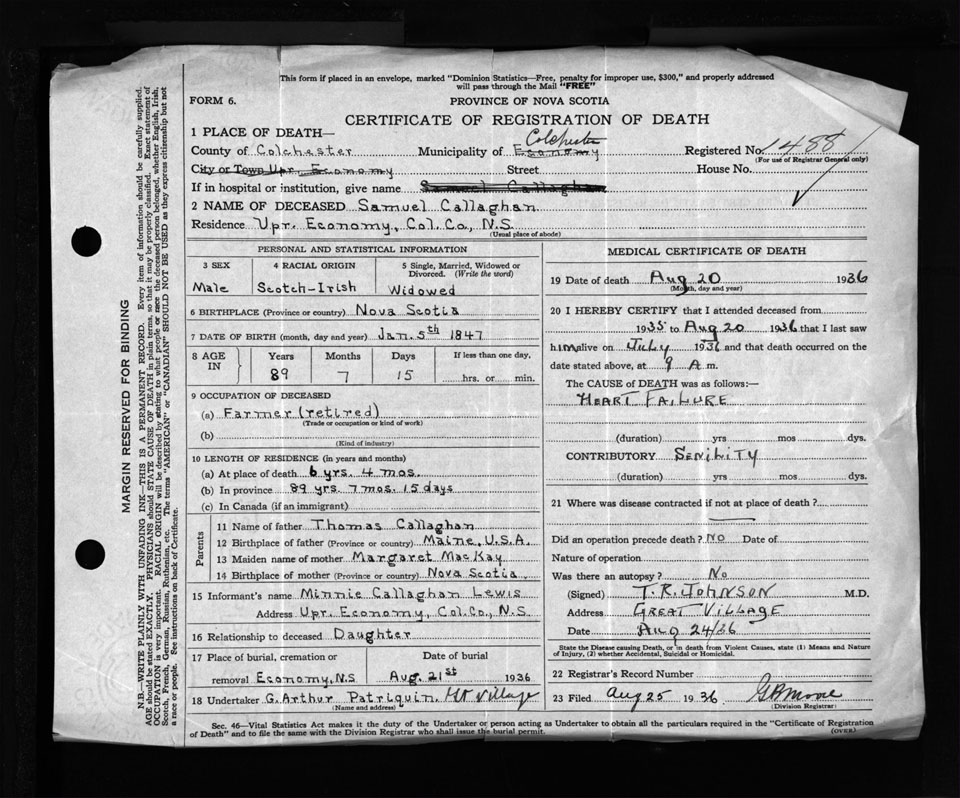 This form if placed in an envelope, marked "Dominion Statistics—Free, penalty for improper use, $300," and properly addressed
will pass through the Mail "FREE"
FORM 6.
PROVINCE OF NOVA SCOTIA
CERTIFICATE OF REGISTRATION OF DEATH
1 PLACE OF DEATH—
Colchester
County of Colchester Municipality of Economy Registered No. 1488
(For use of Registrar General only)
City or Town Upr. Economy Street House No.
If in hospital or institution, give name Samuel Callaghan
2 NAME OF DECEASED Samuel Callaghan
Residence Upr. Economy, Col. Co., N.S.
(Usual place of abode)
PERSONAL AND STATISTICAL INFORMATION
3 SEX 4 RACIAL ORIGIN 5 Single, Married, Widowed or
Divorced. (Write the word)
Male Scotch-Irish Widowed
6 BIRTHPLACE (Province or country) Nova Scotia
7 DATE OF BIRTH (month, day and year) Jan. 5th 1847
8 AGE IN Years Months Days If less than one day,
89 7 15 hrs. or min.
9 OCCUPATION OF DECEASED
(a) Farmer (retired)
(Trade or occupation or kind of work)
(b)
(Kind of industry)
10 LENGTH OF RESIDENCE (in years and months)
(a) At place of death 6 yrs. 4 mos.
(b) In province 89 yrs. 7 mos. 15 days
(c) In Canada (if an immigrant)
Parents
11 Name of father Thomas Callaghan
12 Birthplace of father (Province or country) Maine, U.S.A.
13 Maiden name of mother Margaret MacKay
14 Birthplace of mother (Province or country) Nova Scotia
15 Informant's name Minnie Callaghan Lewis
Address Upr. Economy, Col. Co., N.S.
16 Relationship to deceased Daughter
17 Place of burial, cremation or Date of burial
removal Economy, N.S Aug. 21st 1936
18 Undertaker G. Arthur Patriquin. Gt Village
(Name and address)
MEDICAL CERTIFICATE OF DEATH
19 Date of death Aug 20 1936
(Month, day and year)
20 I HEREBY CERTIFY that I attended deceased from
1935 to Aug 20 1936 that I last saw
him alive on July 1936 and that death occurred on the
date stated above, at 9 A m.
The CAUSE of DEATH was as follows:—
HEART FAILURE
(duration) yrs mos dys.
CONTRIBUTORY SENILITY
(duration) yrs. mos. dys.
21 Where was disease contracted if not at place of death?
Did an operation precede death? NO Date of
Nature of operation
Was there an autopsy? No
(Signed) T. R. JOHNSON M.D.
Address GREAT VILLAGE
Date Aug 24/36
State the Disease causing Death, or in death from Violent Causes, state (1) Means and Nature
of Injury, (2) whether Accidental, Suicidal or Homicidal.
22 Registrar's Record Number
23 Filed Aug 25 1936 G B Moore
(Division Registrar)
Sec. 46—Vital Statistics Act makes it the duty of the Undertaker or person acting as Undertaker to obtain all the particulars required in the "Certificate of Registration
of Death" and to file the same with the Division Registrar who shall issue the burial permit.
(OVER)
MARGIN RESERVED FOR BINDING
N.B.—WRITE PLAINLY WITH UNFADING INK—THIS IS A PERMANENT RECORD. Every item of information should be carefully supplied.
AGE should be stated EXACTLY. PHYSICIANS should STATE CAUSE OF DEATH in plain terms, so that it may be properly classified. Exact statement of
OCCUPATION is very important. RACIAL ORIGIN will be described by stating to what people or race the deceased person belonged, whether English, Irish,
Scotch, French, German, Russian, Ruthenian, etc. The terms "AMERICAN" or "CANADIAN" SHOULD NOT BE USED as they express citizenship but not
a race or people. See instructions on back of Certificate.